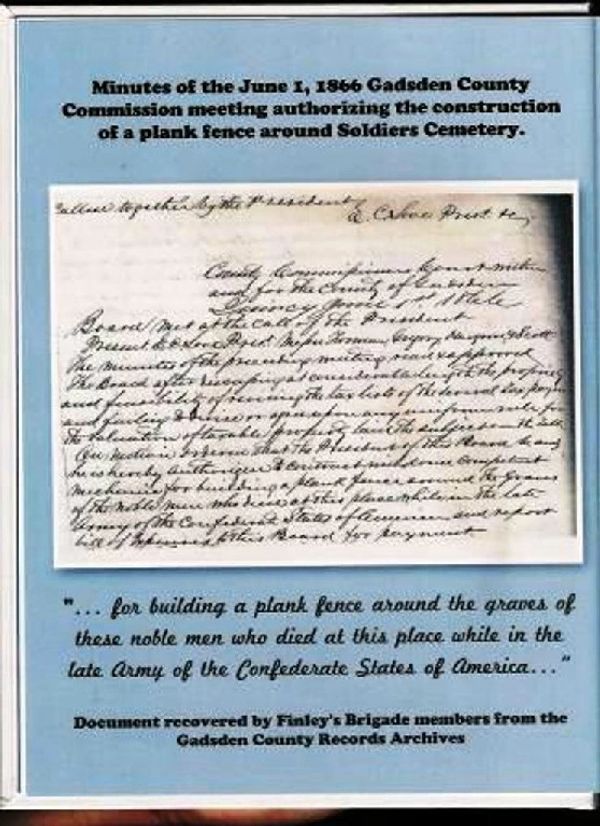 Minutes of the June 1, 1866 Gadsden County
Commission meeting authorizing the construction
of a plank fence around Soldiers Cemetery.
together by the President
E. C. Love Prest &c
County Commissioners Court within
and for the County of Gadsden
Quincy June 1st 1866
Board met at the call of the President
Present E C Love Prest. Messrs Forman Gregory & Scott
The minutes of the preceding meeting read & approved
The Board after discussing at considerable length the propriety
and feasibility of revising the tax lists of the several tax payers
and failing to agree upon any uniform rule for
the valuation of taxable property laid the subject on the table
On motion ordered that the President of this Board be and
he is hereby authorized to contract with some competent
mechanic for building a plank fence around the Graves
of the noble men who died at this place while in the late
Army of the Confederate States of America and report
bill of expenses to this Board for payment
"... for building a plank fence around the graves of
these noble men who died at this place while in the
late Army of the Confederate States of America..."
Document recovered by Finley's Brigade members from the
Gadsden County Records Archives